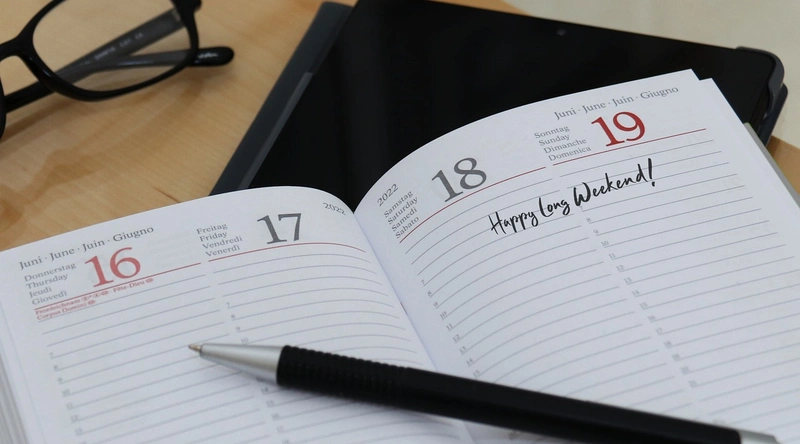 Juni · June · Juin · Giugno
Donnerstag
Thursday
Jeudi
Giovedi
16
Fronleichnam
Fête-Dieu
Corpus Domini
Freitag
Friday
Vendredi
Venerdi
17
2022
2022
Samstag
Saturday
Samedi
Sabato
18
Juni · June · Juin · Giugno
Sonntag
Sunday
Dimanche
Domenica
19
Happy Long Weekend!